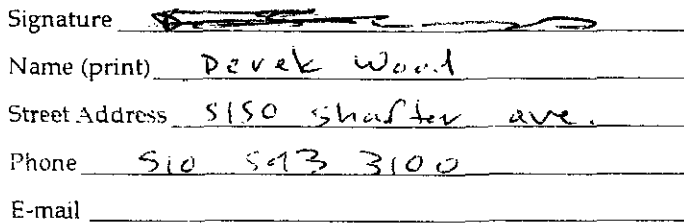 Signature
Name (print) Derek Wood
Street Address 5150 shafter ave.
Phone 510 593 3100
E-mail